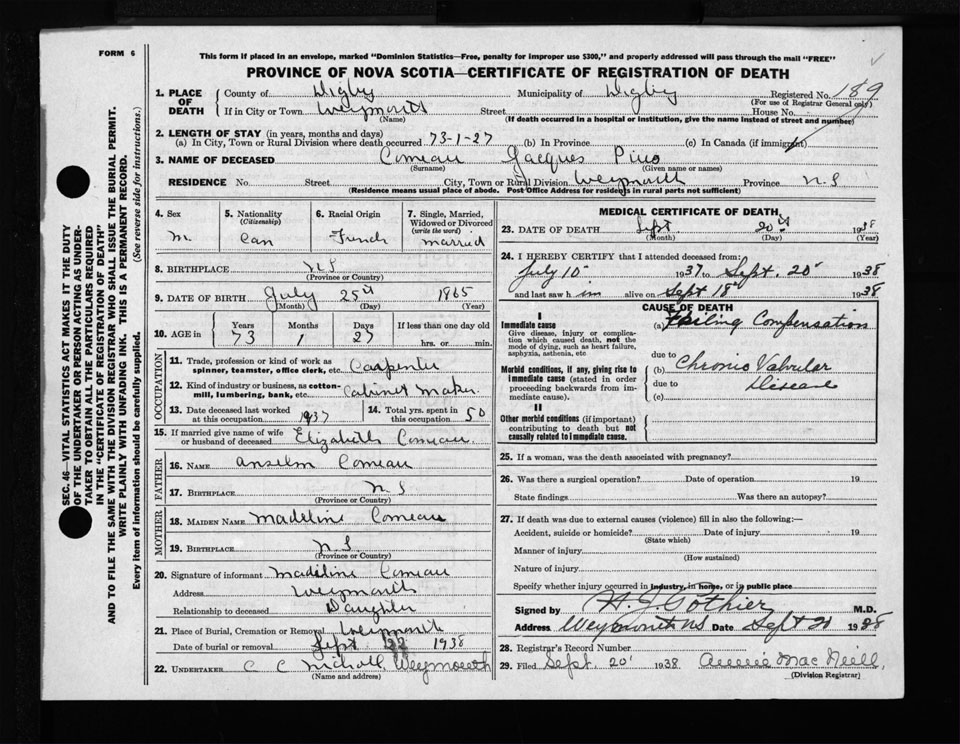 FORM 6
This form if placed in an envelope, marked "Dominion Statistics—Free, penalty for improper use $300," and properly addressed will pass through the mail "FREE"
PROVINCE OF NOVA SCOTIA—CERTIFICATE OF REGISTRATION OF DEATH
1. PLACE OF DEATH County of Digby Municipality of Digby Registered No. 189
(For use of Registrar General only)
If in City or Town Weymouth Street House No.
(Name) (If death occurred in a hospital or institution, give the name instead of street and number)
2. LENGTH OF STAY (in years, months and days)
(a) In City, Town or Rural Division where death occurred 73-1-27 (b) In Province (c) In Canada (if immigrant)
3. NAME OF DECEASED Comeau Jacques Pius
(Surname) (Given name or names)
RESIDENCE No. Street City, Town or Rural Division Weymouth Province N.S
(Residence means usual place of abode. Post Office Address for residents in rural parts not sufficient)
4. Sex 5. Nationality 6. Racial Origin 7. Single, Married, Widowed or Divorced
(Citizenship) (write the word)
m. Can French married
8. BIRTHPLACE N S
(Province or Country)
9. DATE OF BIRTH July 25th 1865
(Month) (Day) (Year)
10. AGE in Years Months Days If less than one day old
73 1 27 hrs. or min.
OCCUPATION
11. Trade, profession or kind of work as spinner, teamster, office clerk, etc. Carpenter
12. Kind of industry or business, as cotton-mill, lumbering, bank, etc. Cabinet maker
13. Date deceased last worked at this occupation 1937 14. Total yrs. spent in this occupation 50
15. If married give name of wife or husband of deceased Elizabeth Comeau
FATHER
16. NAME Anselm Comeau
17. BIRTHPLACE N S
(Province or Country)
MOTHER
18. MAIDEN NAME Madeline Comeau
19. BIRTHPLACE N S
(Province or Country)
20. Signature of informant Madeline Comeau
Address Weymouth
Relationship to deceased Daughter
21. Place of Burial, Cremation or Removal Weymouth
Date of burial or removal Sept 22 1938
22. UNDERTAKER C C Nichol Weymouth
(Name and address)
MEDICAL CERTIFICATE OF DEATH
23. DATE OF DEATH Sept 20th 1938
(Month) (Day) (Year)
24. I HEREBY CERTIFY that I attended deceased from:
July 10 1937 to Sept. 20 1938
and last saw him alive on Sept 18th 1938
CAUSE OF DEATH
I
Immediate cause (a) Failing Compensation
Give disease, injury or complication which caused death, not the mode of dying, such as heart failure, asphyxia, asthenia, etc
due to
Morbid conditions, if any, giving rise to immediate cause (stated in order proceeding backwards from immediate cause).
(b) Chronic Valvular
due to Disease
(c)
II
Other morbid conditions (if important) contributing to death but not causally related to immediate cause.
25. If a woman, was the death associated with pregnancy?
26. Was there a surgical operation? Date of operation 19
State findings Was there an autopsy?
27. If death was due to external causes (violence) fill in also the following:—
Accident, suicide or homicide? Date of injury 19
(State which)
Manner of injury
(How sustained)
Nature of injury
Specify whether injury occurred in industry, in home, or in public place
Signed by H. J. Pothier M.D.
Address Weymouth NS Date Sept 20 1938
28. Registrar's Record Number
29. Filed Sept. 20 1938 Annie MacNeill
(Division Registrar)
SEC. 46—VITAL STATISTICS ACT MAKES IT THE DUTY
OF THE UNDERTAKER OR PERSON ACTING AS UNDER-
TAKER TO OBTAIN ALL THE PARTICULARS REQUIRED
IN THE "CERTIFICATE OF REGISTRATION OF DEATH"
AND TO FILE THE SAME WITH THE DIVISION REGISTRAR WHO SHALL ISSUE THE BURIAL PERMIT.
WRITE PLAINLY WITH UNFADING INK. THIS IS A PERMANENT RECORD.
Every item of information should be carefully supplied. (See reverse side for instructions.)